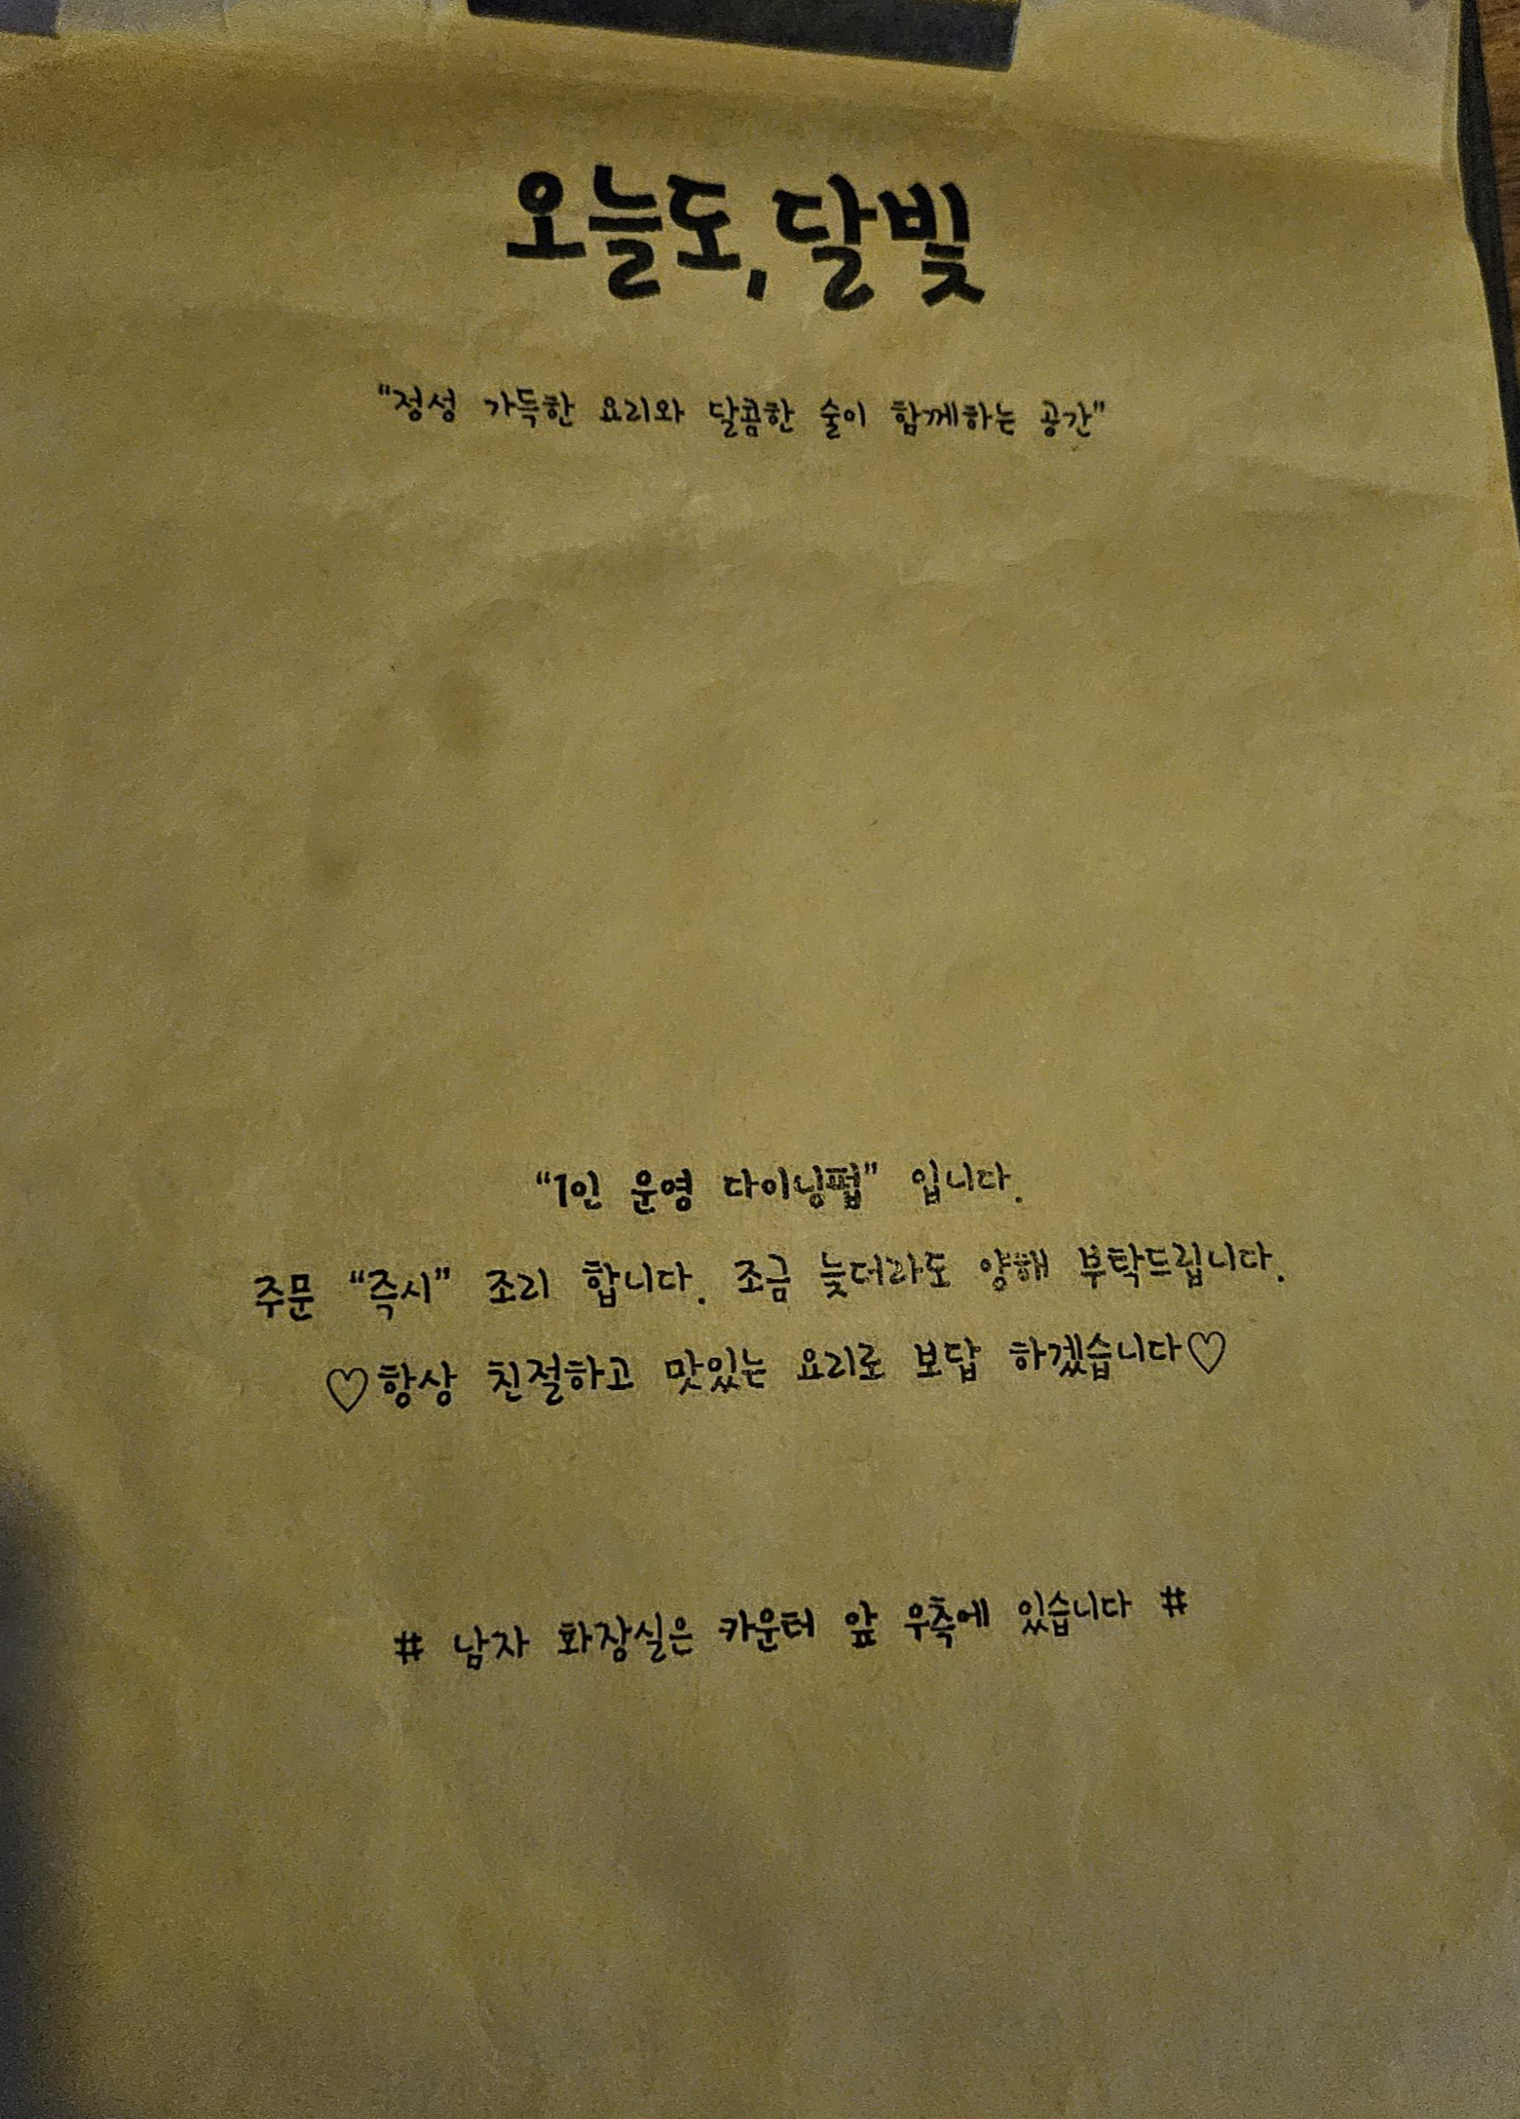 오늘도, 달빛
"정성 가득한 요리와 달콤한 술이 함께하는 공간"
"1인 운영 다이닝펍" 입니다.
주문 "즉시" 조리 합니다. 조금 늦더라도 양해 부탁드립니다.
♡항상 친절하고 맛있는 요리로 보답 하겠습니다♡
# 남자 화장실은 카운터 앞 우측에 있습니다 #